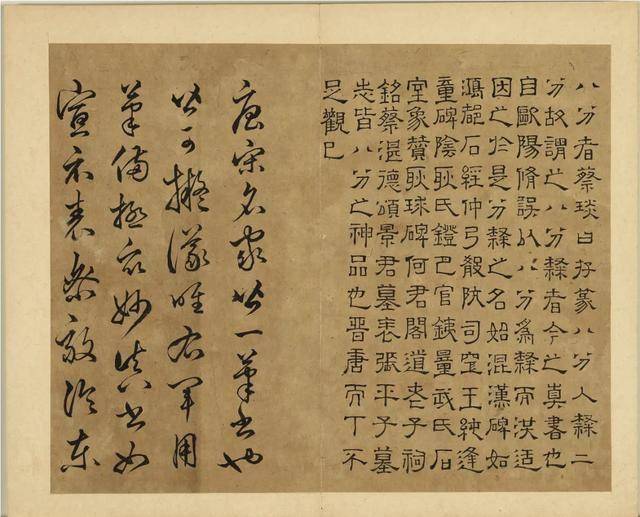 八分者蔡琰曰存篆八分入隸二
分故謂之八分隸者今之真書也
自歐陽脩誤以八分為隸而洪适
因之於是分隸之名始混漢碑如
鴻都石經仲弓殽阬司空王純逢
童碑陰耿氏鐙巴官鐵量武氏石
室象贊耿球碑何君閣道老子祠
銘蔡湛德頌景君墓表張平子墓
志皆八分之神品也晉唐而下不
足觀已
唐宋名家皆一筆書也
皆可擬議唯右軍用
筆備極衆妙真書如
宣示表樂毅論東